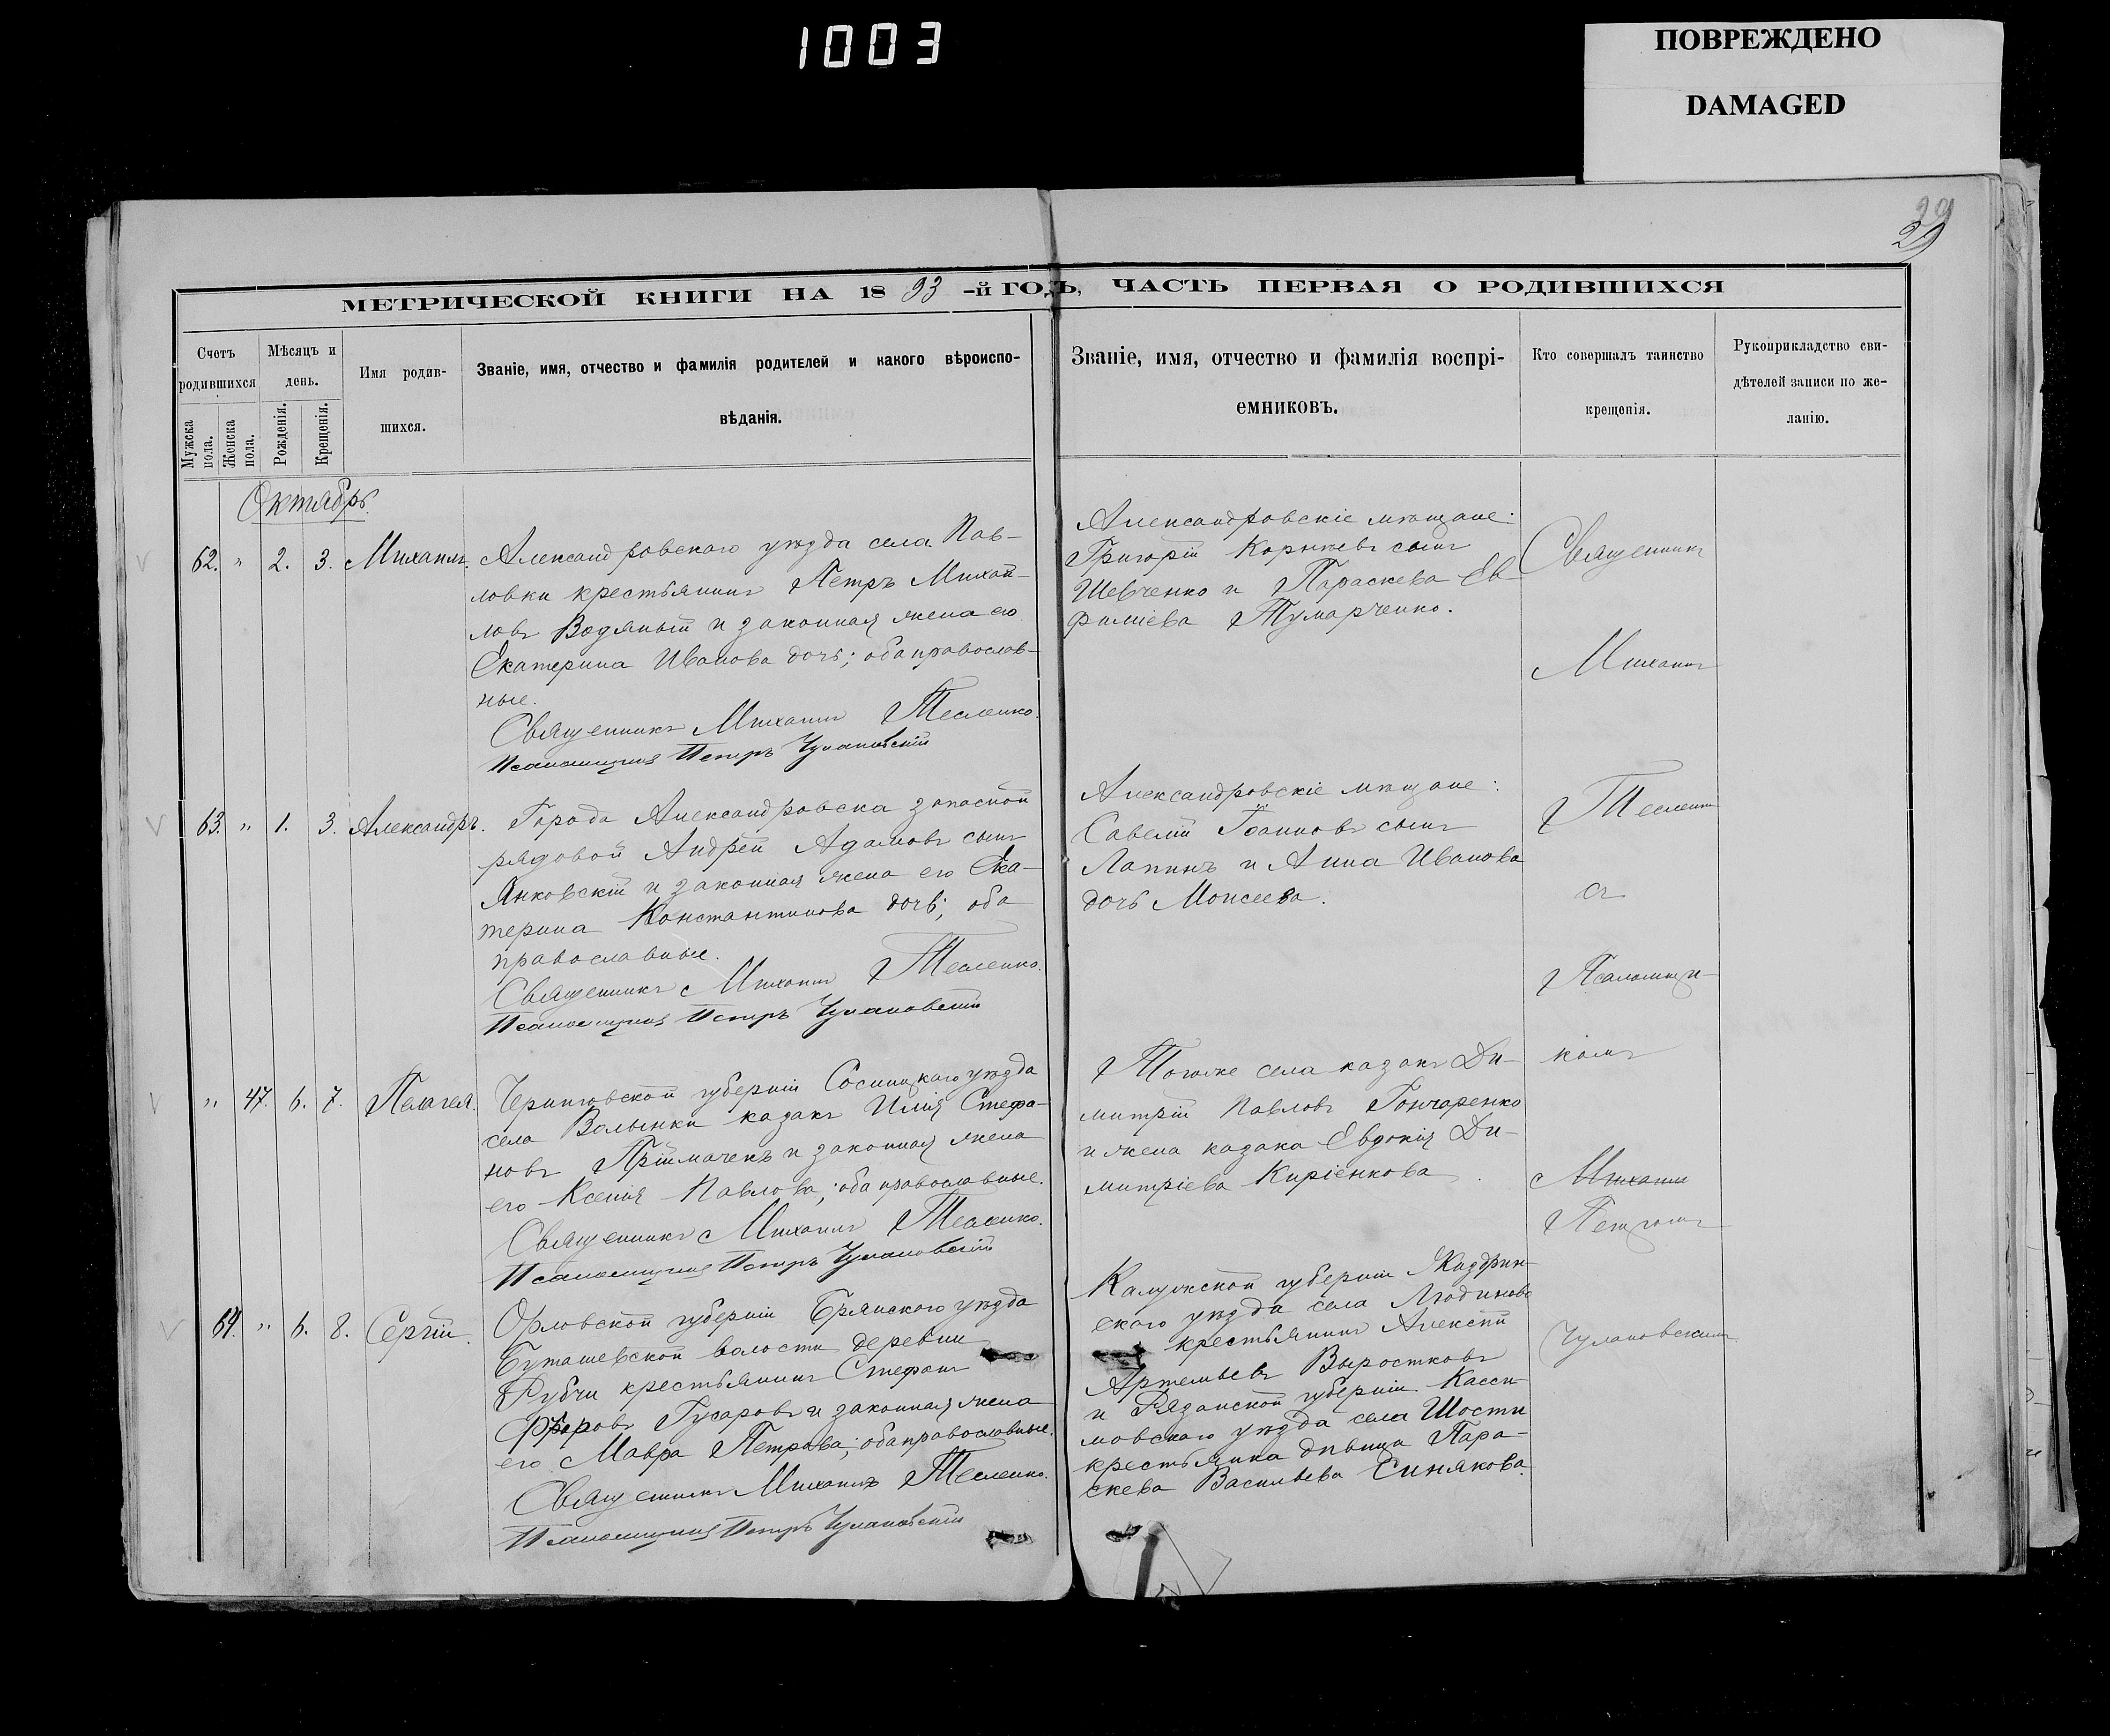 1003
ПОВРЕЖДЕНО
DAMAGED
29
МЕТРИЧЕСКОЙ КНИГИ НА 1893-й ГОДЪ, ЧАСТЬ ПЕРВАЯ О РОДИВШИХСЯ
Счетъ родившихся
Мужска пола.
Женска пола.
Мѣсяцъ и день.
Рожденія.
Крещенія.
Имя родив-
шихся.
Званіе, имя, отчество и фамилія родителей и какого вѣроиспо-
вѣданія.
Званіе, имя, отчество и фамилія воспрі-
емниковъ.
Кто совершалъ таинство
крещенія.
Рукоприкладство сви-
дѣтелей записи по же-
ланію.
Октябрь.
62. " 2. 3. Михаилъ.
Александровскаго уѣзда села Пав-
ловки крестьянинъ Петръ Михай-
ловъ Водяный и законная жена его
Екатерина Иванова дочь; оба православ-
ные.
Священникъ Михаилъ Тесленко.
Псаломщикъ Петръ Чулановскій
Александровскіе мѣщане:
Григорій Корнѣевъ сынъ
Шевченко и Параскева Ев-
фиміева Тумарченко.
63. " 1. 3. Александръ.
Города Александровска запасной
рядовой Андрей Адамовъ сынъ
Янковскій и законная жена его Ека-
терина Константинова дочь; оба
православные.
Священникъ Михаилъ Тесленко.
Псаломщикъ Петръ Чулановскій
Александровскіе мѣщане:
Савелій Іоанновъ сынъ
Лапинъ и Анна Иванова
дочь Моисеева.
" 47. 6. 7. Пелагея.
Черниговской губерніи Сосницкаго уѣзда
села Волынки казакъ Илія Стефа-
новъ Пріймачекъ и законная жена
его Ксенія Павлова; оба православные.
Священникъ Михаилъ Тесленко.
Псаломщикъ Петръ Чулановскій
Того же села казакъ Ди-
митрій Павловъ Гончаренко
и жена казака Евдокія Ди-
митріева Кирієнкова.
64. " 6. 8. Сергій.
Орловской губерніи Брянскаго уѣзда
Буташевской волости деревни
Рубчи крестьянинъ Стефанъ
Гусаровъ и законная жена
его Мавра Петрова; оба православные.
Священникъ Михаилъ Тесленко.
Псаломщикъ Петръ Чулановскій
Калужской губерніи Жиздрин-
скаго уѣзда села Людиново
крестьянинъ Алексѣй
Артемьевъ Выростковъ
и Рязанской губерніи Касси-
мовскаго уѣзда села Шости
крестьянка дѣвица Пара-
скева Васильева Синякова.
Священникъ
Михаилъ
Тесленко
съ
Псаломщи-
комъ
Михаил
Петромъ
Чулановскимъ